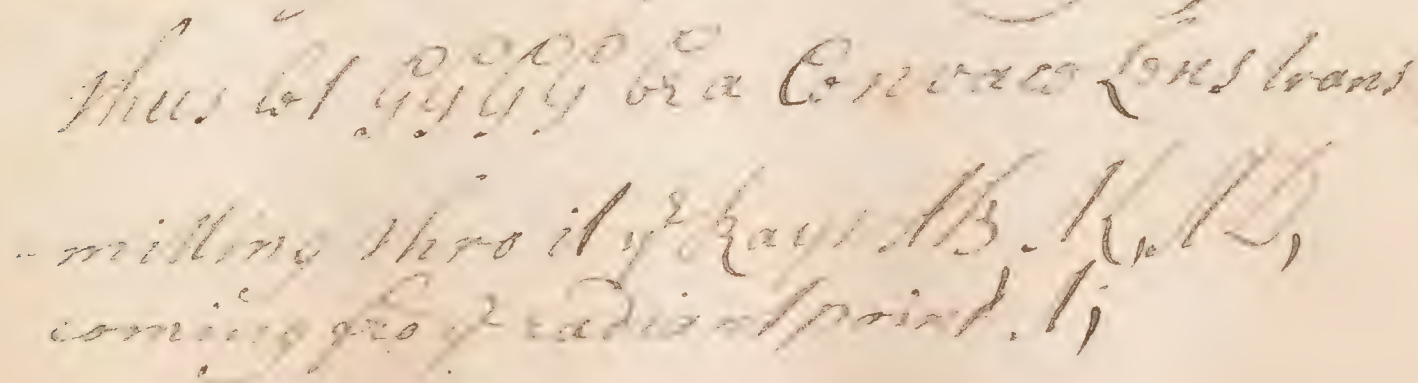 thus let gggg be a Convex Lens trans
-mitting thro it yᵉ Rays AB. AC, AD,
coming fro yᵉ radiant point. A;